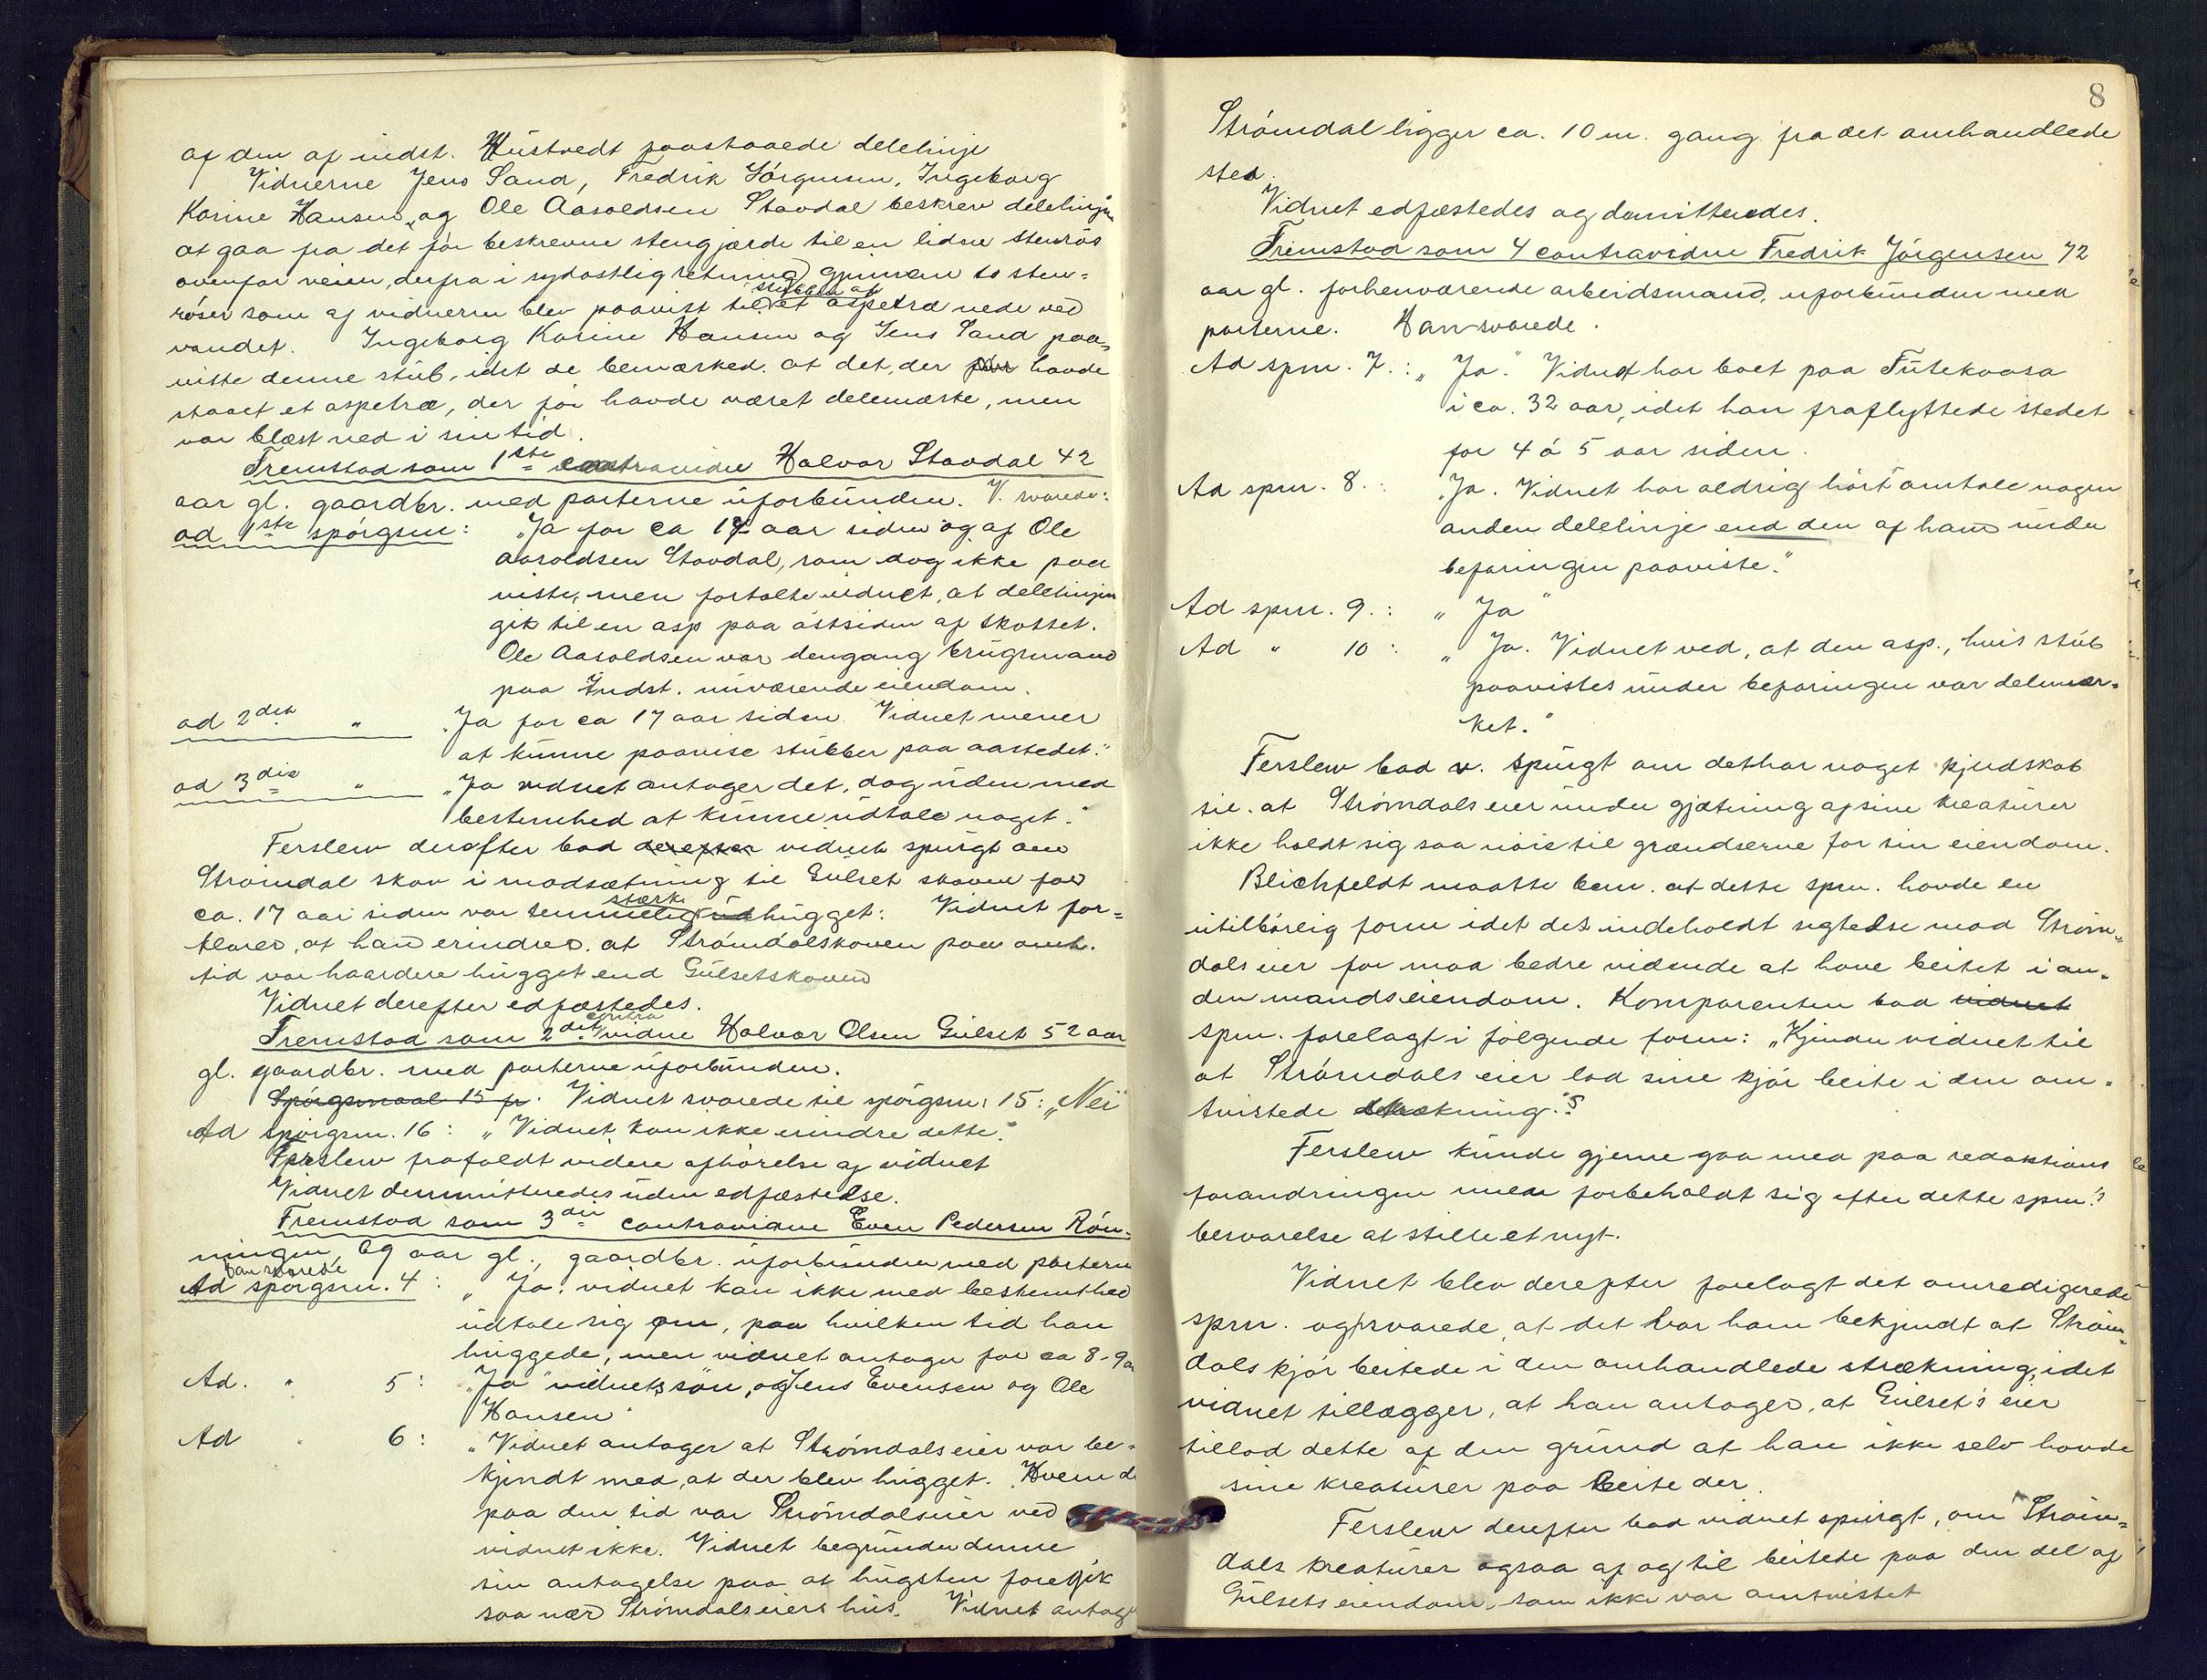 af den af indst. Hüstvedt paastaaede delelinje
Vidnerne Jens Sand, Fredrik Jörgensen, Ingeborg
Karine Hansen, og Ole Aasoldsen Stavdal beskrev delelinjen
at gaa fra det för beskrevne stengjærde til en liden stenrös
ovenfor veien, derfra i sydostlig retning gjennem to sten-
röser som af vidnerne blev paavist til stubben af et aspetræ nede ved
vandet. Ingeborg Karine Hansen og Jens Sand paa-
viste denne stüb, idet de bemærked. at det, der för havde
staaet et aspetræ, der för havde været delemærke, men
var blæst ned i sin tid.
Fremstod som 1ste contravidne Halvor Stavdal 42
aar gl. gaardbr. med parterne üforbünden. V. svarede:
ad 1ste spörgsm: "Ja for ca 17 aar siden og af Ole
Aasoldsen Stavdal, som dog ikke paa
viste, men fortalte vidnet, at delelinjen
gik til en asp paa östsiden af skottet.
Ole Aasoldsen var dengang brügsmand
paa Indst. nüværende eiendom.
ad 2det " "Ja for ca 17 aar siden. Vidnet mener
at künne paavise stübber paa aastedet."
ad 3die " "Ja vidnet antager det, dog üden med
bestemhed at künne üdtale noget."
Ferslew derefter bad derefter vidnet spürgt om
Strömdal skov i modsætning til Gülset skoven for
ca. 17 aar siden var temmelig stærk üdhügget: Vidnet for-
klarer, at han erindrer, at Strömdalskoven paa omh.
tid var haardere hügget end Gülsetskoven
Vidnet derefter edfæstedes.
Fremstod som 2det contra vidne Halvor Olsen Gülset 52 aar
gl. gaardbr. med parterne üforbünden.
Spörgsmaal 15 fr. Vidnet svarede til spörgsm. 15: "Nei"
Ad spörgsm. 16: "Vidnet kan ikke erindre dette."
Ferslew frafaldt videre afhörelse af vidnet
Vidnet demmitteredes üden edfæstelse.
Fremstod som 3die contravidne Even Pedersen Rön-
ningen, 69 aar gl., gaardbr. üforbünden med parterne
Han svarede
Ad spörgsm. 4: "Ja: vidnet kan ikke med bestemthed
üdtale sig om, paa hvilken tid han
hüggede, men vidnet antager for ca 8-9 a
Ad. " 5: "Ja" vidnets sön, og Jens Evensen og Ole
Hansen"
Ad " 6: "Vidnet antager at Strömdals eier var be-
kjendt med, at der blev hügget. Hvem d
paa den tid var Strömdalseier ved
vidnet ikke. Vidnet begründer denne
sin antagelse paa at hügsten foregik
saa nær Strömdalseiers hüs. Vidnet antag
8
Strömdal ligger ca. 10 m. gang fra det omhandlede
sted.
Vidnet edfæstedes og demitteredes.
Fremstod som 4 contravidne Fredrik Jörgensen 72
aar gl. forhenværende arbeidsmand, uforbünden med
parterne. Han svarede.
Ad spm. 7.: "Ja." Vidnet har boet paa Fütekaasa
i ca. 32 aar, idet han fraflyttede stedet
for 4 á 5 aar siden.
Ad spm. 8.: "Ja. Vidnet har aldrig hört omtale nogen
anden delelinje end den af ham ünder
befaringen paaviste."
Ad spm. 9.: "Ja"
Ad " 10: "Ja. Vidnet ved, at den asp., hvis stüb
paavistes ünder befaringen var delemær-
ket."
Ferslew bad v. spürgt om det har noget kjendskab
til. at Strömdals eier ünder gjætning af sine kreatürer
ikke holdt sig saa nöie til grændserne for sin eiendom.
Blichfeldt maatte bem. at dette spm. havde en
ütilbörlig form idet det indeholdt sigtelse mod Ström-
dals eier for mod bedre vidende at have beitet i an-
den mands eiendom. Komparenten bad vidnet
spm. forelagt i fölgende form: "Kjender vidnet til
at Strömdals eier lod sine kjör beite i den om-
tvistede strækning."?
Ferslew künde gjerne gaa med paa redaktions
forandringen men forbeholdt sig efter dette spm's
besvarelse at stille et nyt.
Vidnet blev derefter forelagt det omredigerede
spm. og svarede, at det var ham bekjendt at Ström-
dals kjör beitede i den omhandlede strækning, idet
vidnet tillægger, at han antager, at Gülset's eier
tillod dette af den gründ at han ikke selv havde
sine kreatürer paa beite der.
Ferslew derefter bad vidnet spürgt, om Ström-
dals kreatürer ogsaa af og til beitede paa den del af
Gülsets eiendom, som ikke var omtvistet